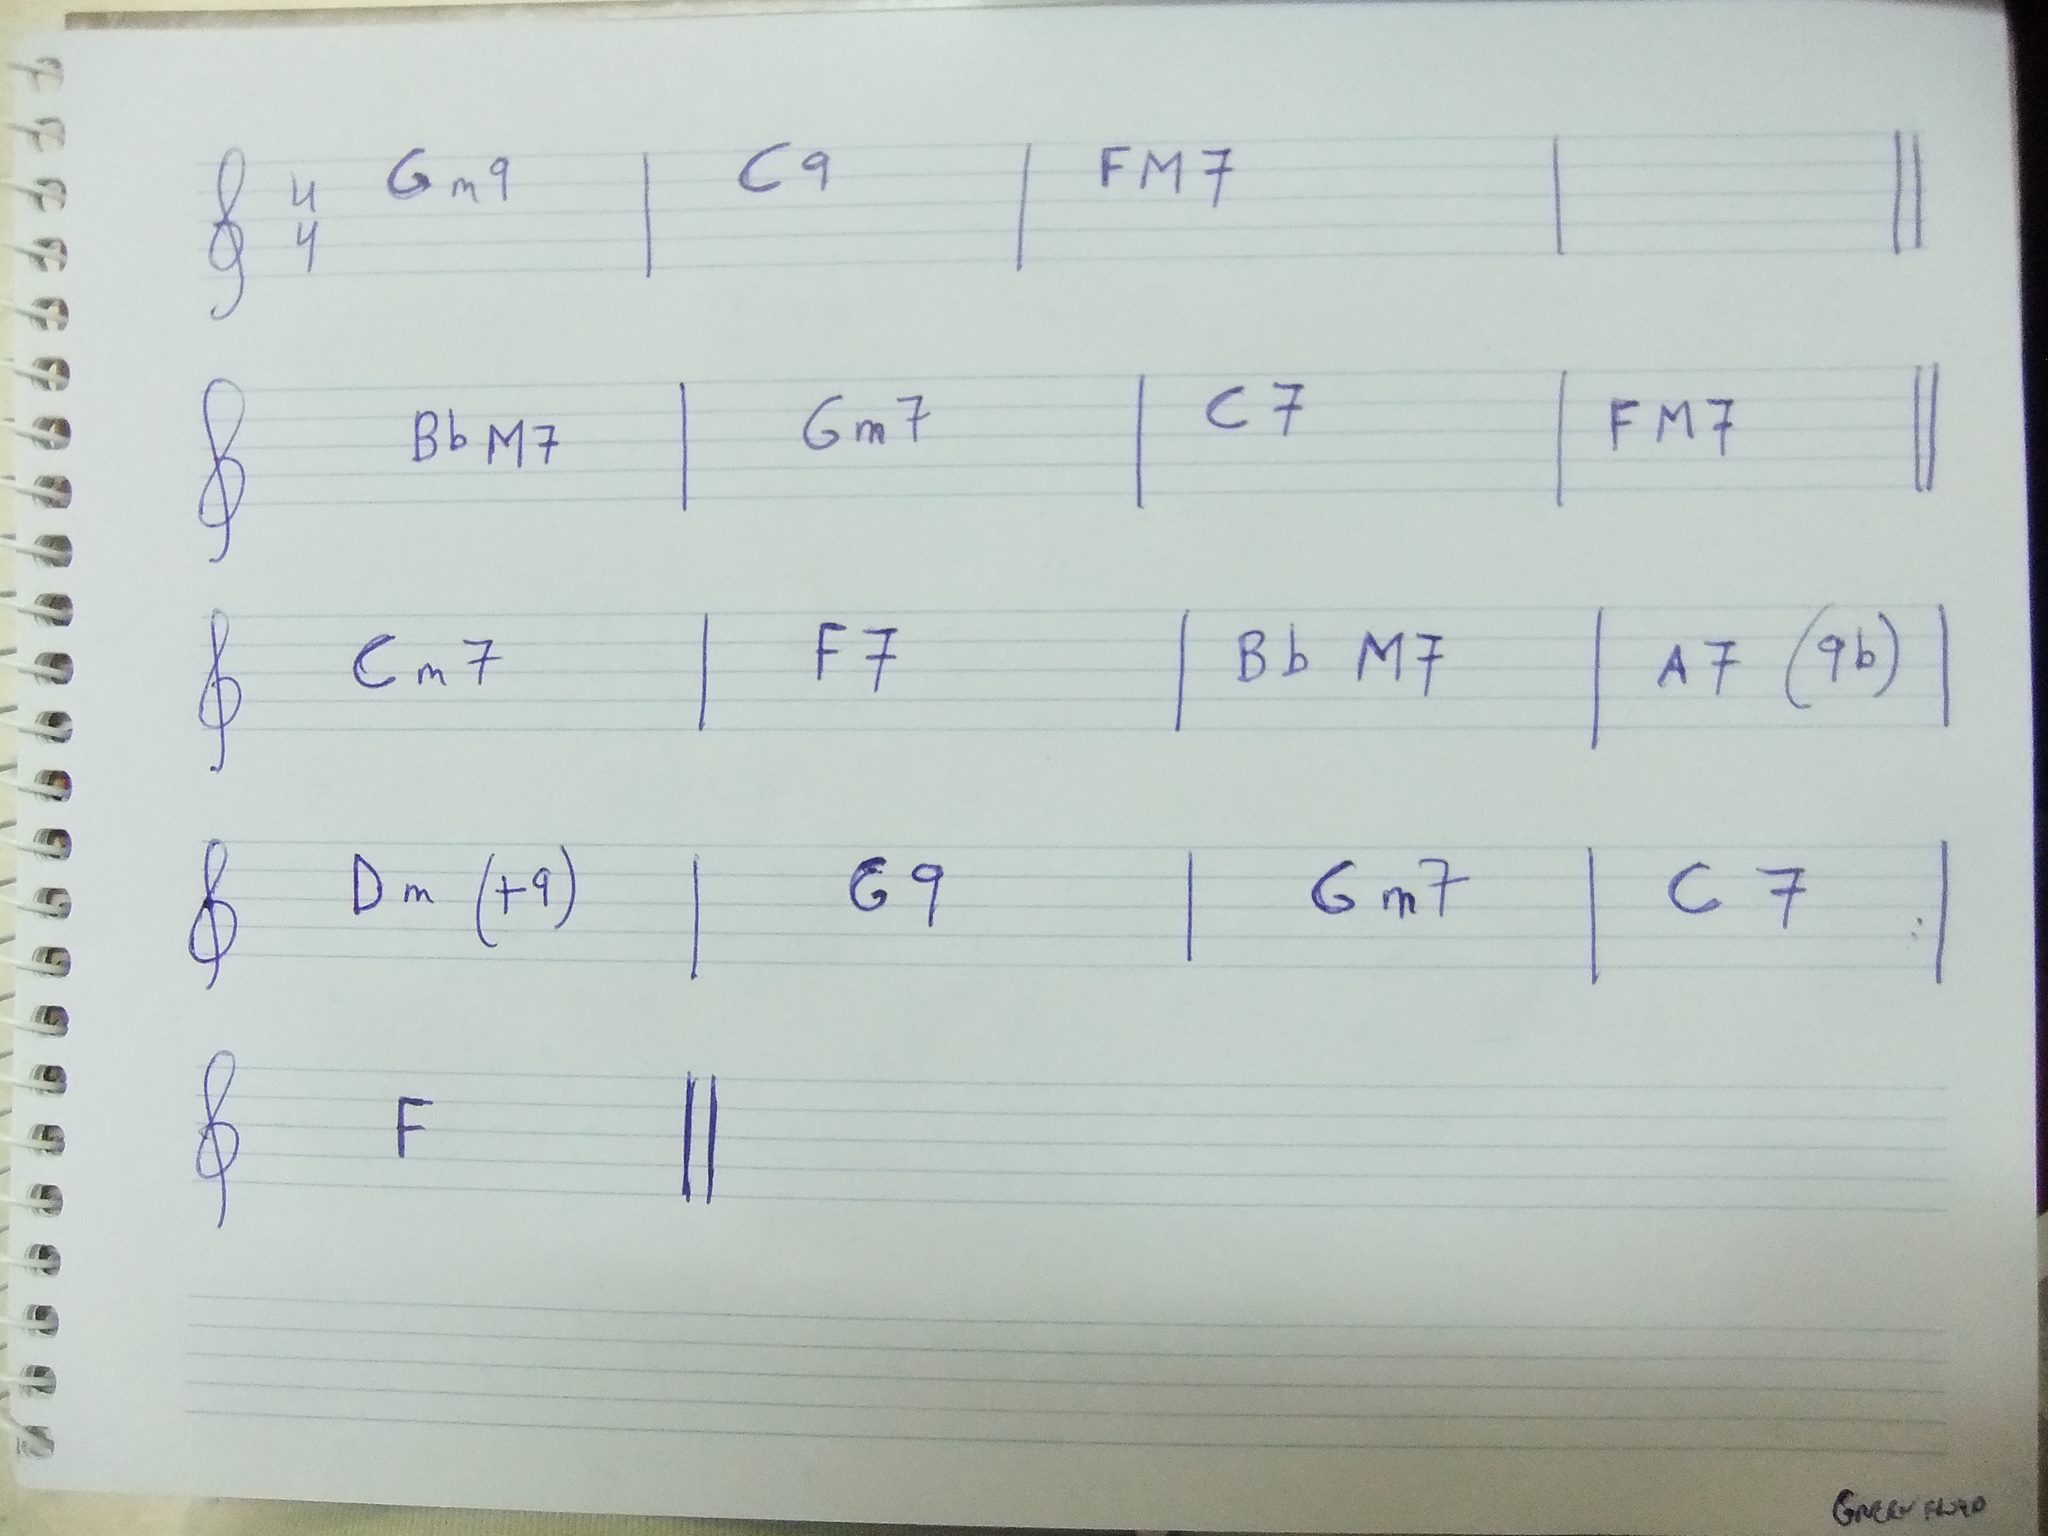 4/4 Gm9 | C9 | FM7 | ||
BbM7 | Gm7 | C7 | FM7 ||
Cm7 | F7 | Bb M7 | A7 (9b) |
Dm (+9) | G9 | Gm7 | C7 :|
F ||